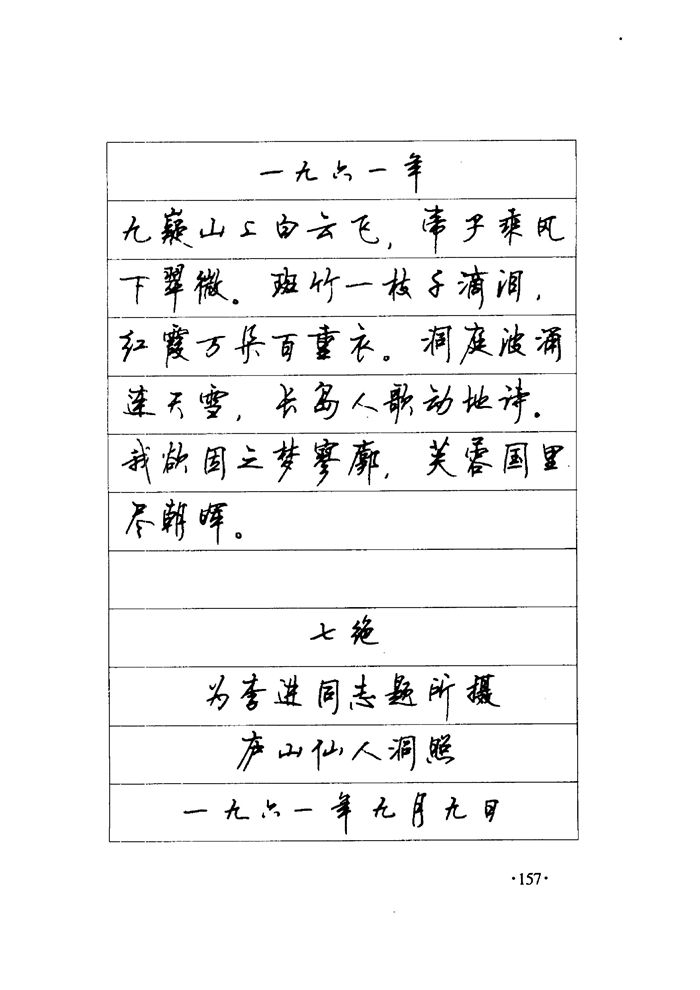 一九六一年
九嶷山上白云飞，帝子乘风
下翠微。斑竹一枝千滴泪，
红霞万朵百重衣。洞庭波涌
连天雪，长岛人歌动地诗。
我欲因之梦寥廓，芙蓉国里
尽朝晖。
七绝
为李进同志题所摄
庐山仙人洞照
一九六一年九月九日
·157·